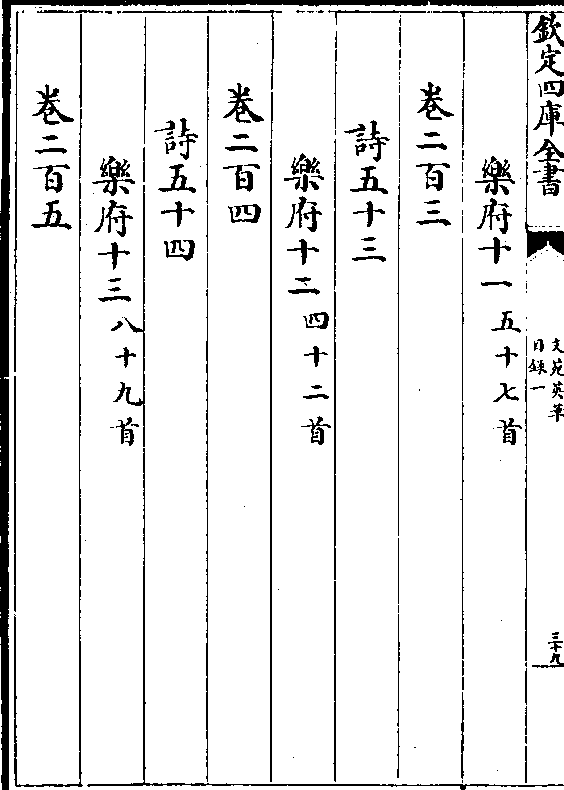 欽定四庫全書
文苑英華
目録一
三十九
樂府十一 五十七首
卷二百三
詩五十三
樂府十二 四十二首
卷二百四
詩五十四
樂府十三 八十九首
卷二百五